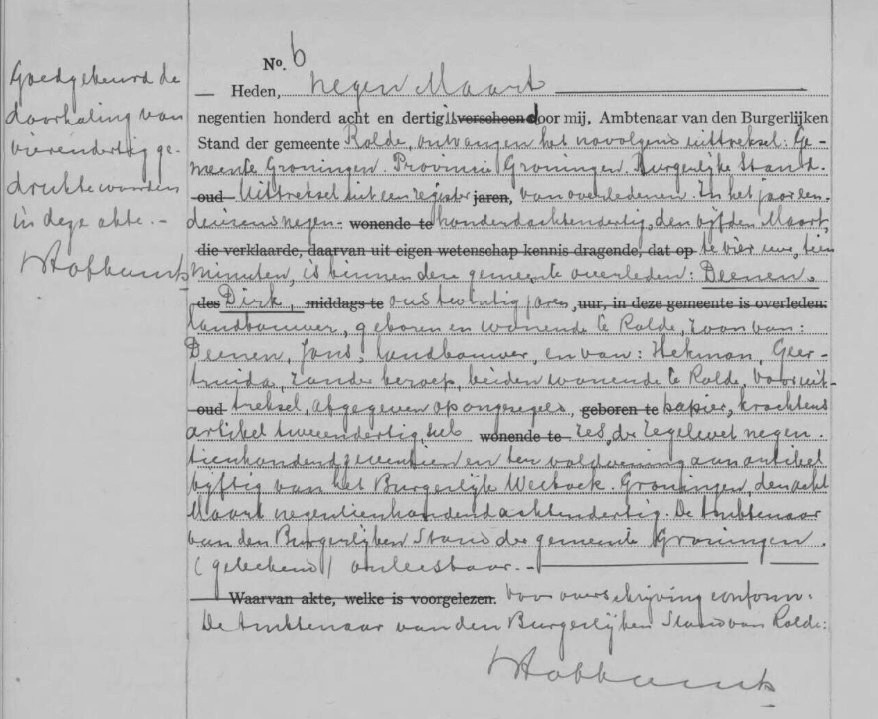 No. 6
Goedgekeurd de
doorhaling van
vierendertig ge-
drukte woorden
in deze akte. -
Heden, negen Maart
negentien honderd acht en dertig is verscheen door mij, Ambtenaar van den Burgerlijken
Stand der gemeente Rolde, ontvangen het navolgend uittreksel: Ge-
meente Groningen. Provincie Groningen. Burgerlijke Stand.
oud Uittreksel uit een register jaren, van overledenen. In het jaar een
duizend negen- wonende te honderdachtendertig, den vijfden Maart,
die verklaarde, daarvan uit eigen wetenschap kennis dragende, dat op te vier ure, tien
minuten, is binnen deze gemeente overleden: Deenen,
des Dirk, middags te oud twintig jaren, uur, in deze gemeente is overleden:
landbouwer, geboren en wonende te Rolde, zoon van:
Deenen, Jans, landbouwer, en van: Hekman, Geer-
truida, zonder beroep, beiden wonende te Rolde. Voor uit-
oud treksel, afgegeven op ongezegeld, geboren te papier, krachtens
artikel tweeendertig, sub wonende te zes, der Zegelwet negen-
tienhonderdzeventien en ter voldoening aan artikel
vijftig van het Burgerlijk Wetboek. Groningen, den acht
Maart negentienhonderdachtendertig. De Ambtenaar
van den Burgerlijken Stand der gemeente Groningen.
(geteekend) onleesbaar. -
Waarvan akte, welke is voorgelezen. Voor overschrijving conform.
De Ambtenaar van den Burgerlijken Stand van Rolde: